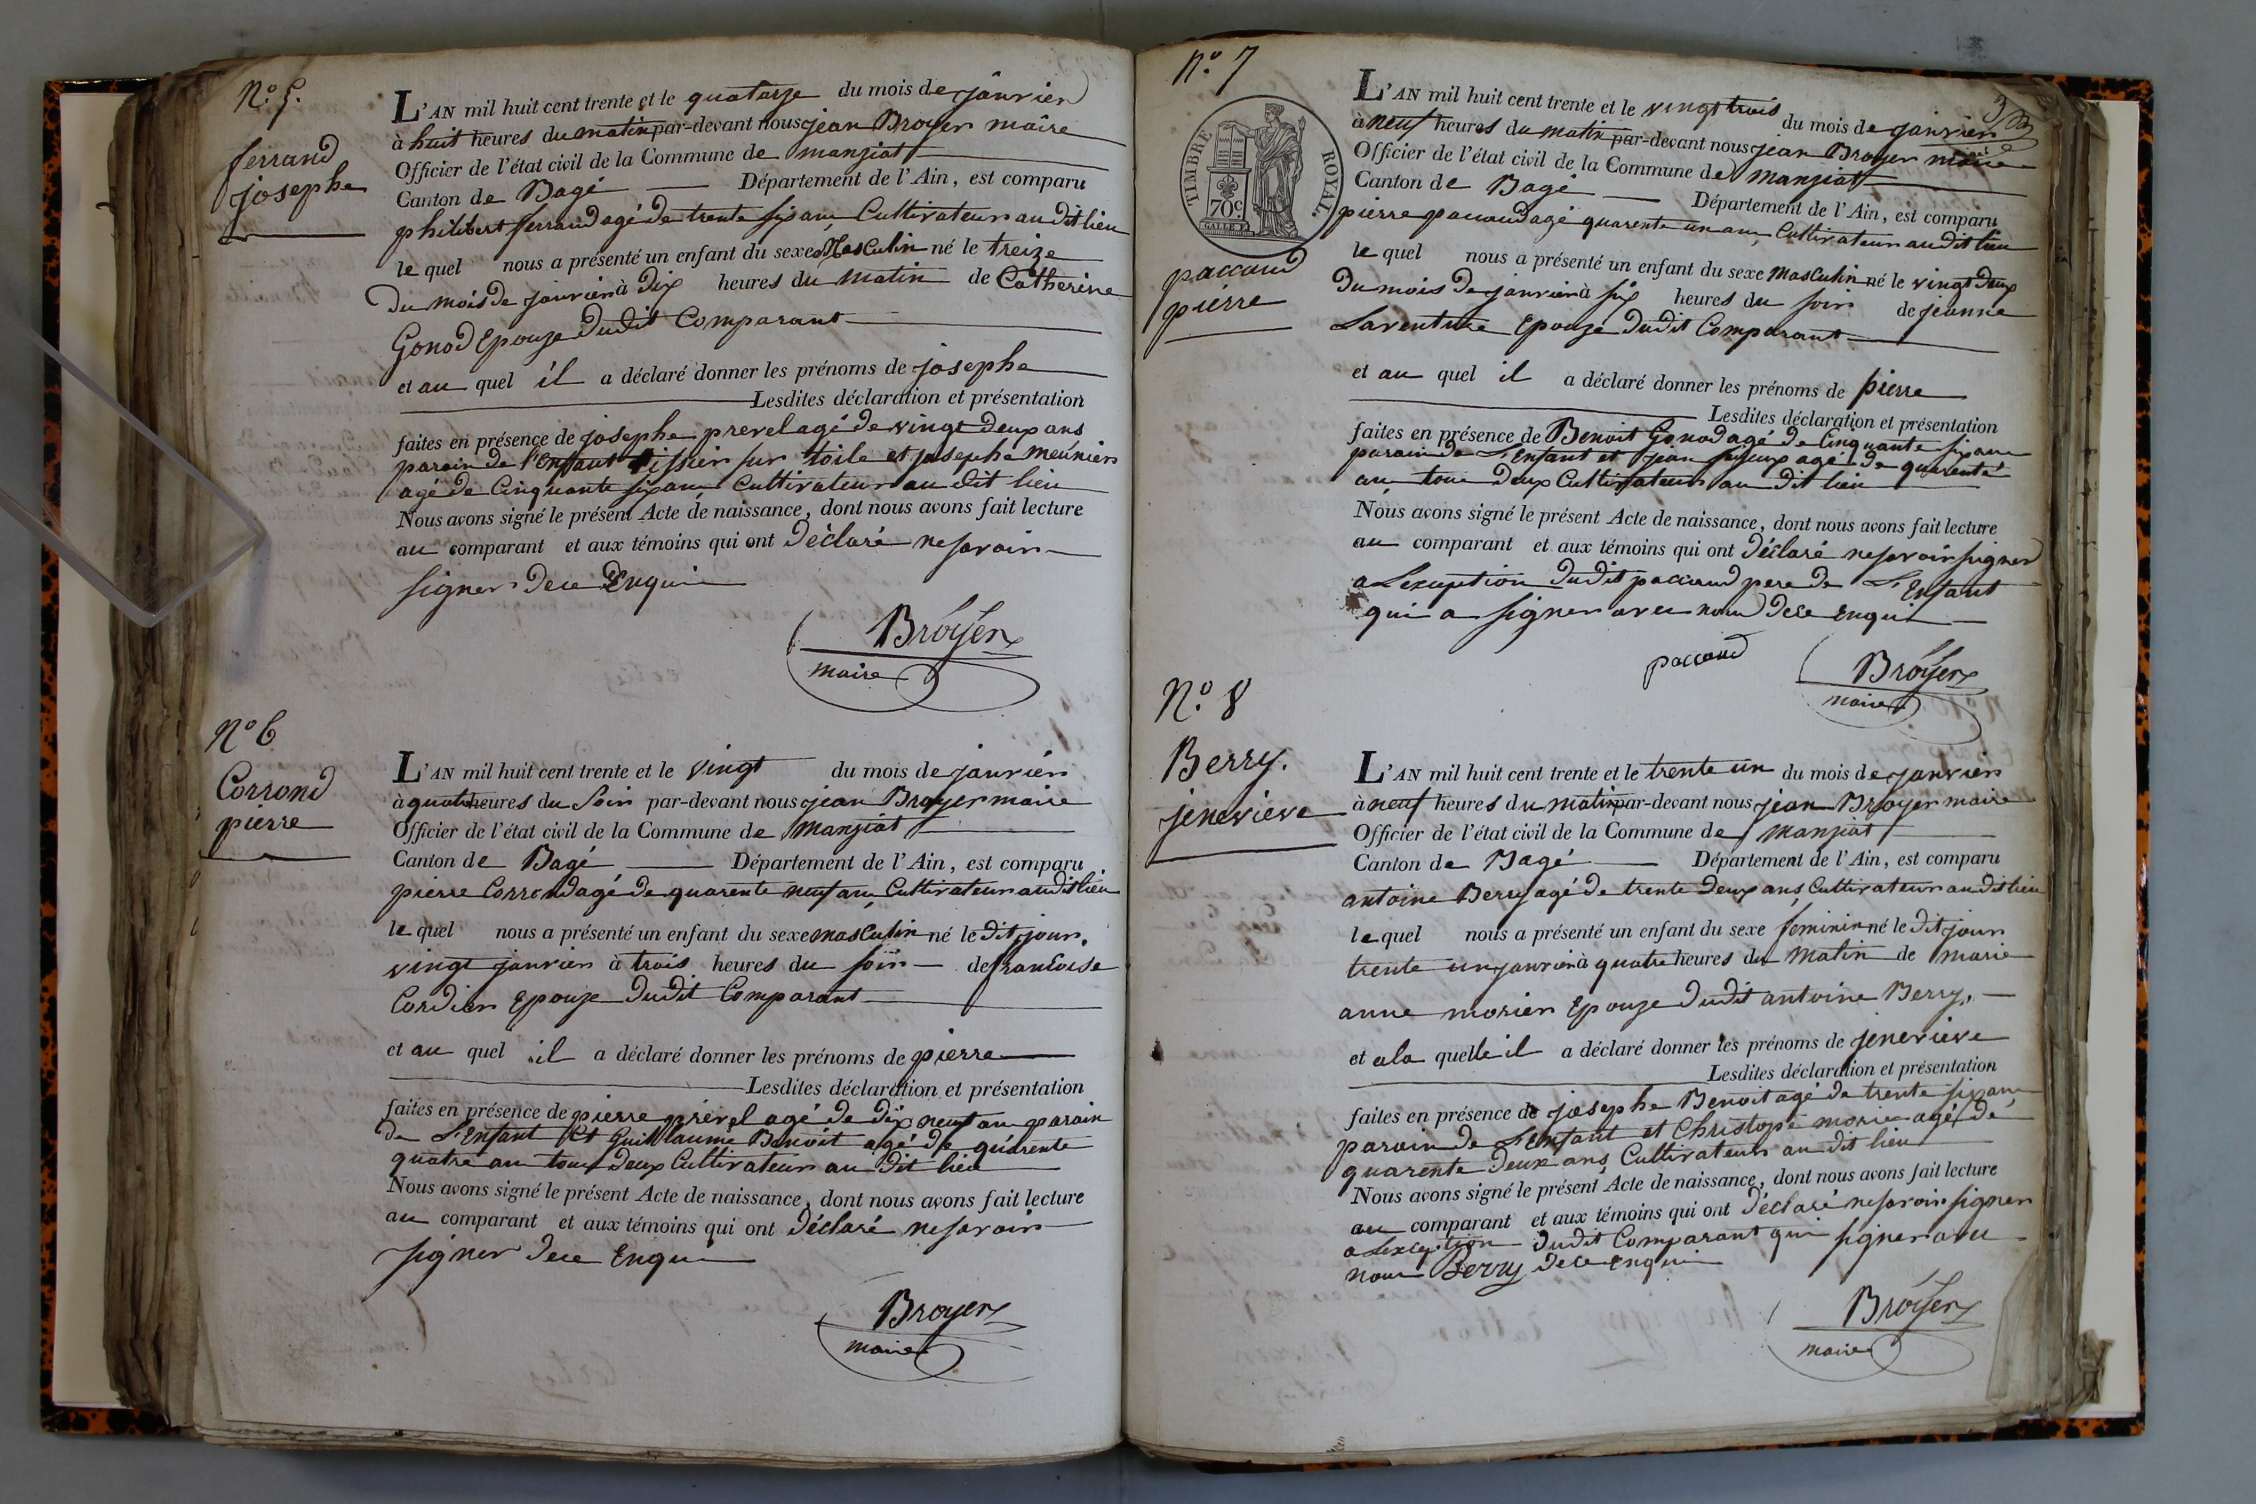 N.o 5.
ferrand
josephe
L'AN mil huit cent trente et le quatorze du mois de janvier
à huit heures du matin par-devant nous jean Broyer maire
Officier de l'état civil de la Commune de manziat
Canton de Bagé Département de l'Ain, est comparu
philibert ferrand agé de trente six ans Cultivateur au dit lieu
le quel nous a présenté un enfant du sexe Masculin né le treize
du mois de janvier à dix heures du matin de Catherine
Gonod Epouze dudit Comparant
et au quel il a déclaré donner les prénoms de josephe
Lesdites déclaration et présentation
faites en présence de josephe prevel agé de vingt deux ans
parain de l'Enfant tissier sur toile et josephe meunier
agé de Cinquante six ans Cultivateur au dit lieu
Nous avons signé le présent Acte de naissance, dont nous avons fait lecture
au comparant et aux témoins qui ont déclaré ne savoir
signer de ce Enqui
Broyer
maire
N.o 6
Corrond
pierre
L'AN mil huit cent trente et le vingt du mois de janvier
à quatre heures du Soir par-devant nous jean Broyer maire
Officier de l'état civil de la Commune de manziat
Canton de Bagé Département de l'Ain, est comparu
pierre Corrond agé de quarente neuf ans Cultivateur au dit lieu
le quel nous a présenté un enfant du sexe masculin né le dit jour
vingt janvier à trois heures du soir de francoise
Cordier Epouze dudit Comparant
et au quel il a déclaré donner les prénoms de pierre
Lesdites déclaration et présentation
faites en présence de pierre prévél agé de dix neuf ans parain
de L'Enfant Et Guillaume Benoit agé de quarente
quatre ans tous deux Cultivateur au dit lieu
Nous avons signé le présent Acte de naissance, dont nous avons fait lecture
au comparant et aux témoins qui ont déclaré ne savoir
signer de ce Enqui
Broyer
maire
N.o 7
TIMBRE ROYAL.
70c
GALLE F.
paccaud
pierre
L'AN mil huit cent trente et le vingt trois du mois de janvier
à neuf heures du matin par-devant nous jean Broyer maire
Officier de l'état civil de la Commune de manziat
Canton de Bagé Département de l'Ain, est comparu
pierre paccaud agé quarente un ans Cultivateur au dit lieu
le quel nous a présenté un enfant du sexe masculin né le vingt deux
du mois de janvier à six heures du soir de jeanne
Laventure Epouze dudit Comparant
et au quel il a déclaré donner les prénoms de pierre
Lesdites déclaration et présentation
faites en présence de Benoit Gonod agé de Cinquante six ans
parain de L'Enfant et jean agé de quarente
ans tous deux Cultivateur au dit lieu
Nous avons signé le présent Acte de naissance, dont nous avons fait lecture
au comparant et aux témoins qui ont déclaré ne savoir signer
a Lexception dudit paccaud pere de L'Enfant
qui a signer avec nous de ce Enqui
paccaud
Broyer
maire
N.o 8
Berry.
jenevieve
L'AN mil huit cent trente et le trente un du mois de janvier
à neuf heures du matin par-devant nous jean Broyer maire
Officier de l'état civil de la Commune de manziat
Canton de Bagé Département de l'Ain, est comparu
antoine Berry agé de trente deux ans Cultivateur au dit lieu
le quel nous a présenté un enfant du sexe feminin né le dit jour
trente un janvier à quatre heures du matin de marie
anne morier Epouze dudit antoine Berry.
et a la quelle il a déclaré donner les prénoms de jenevieve
Lesdites déclaration et présentation
faites en présence de josephe Benoit agé de trente six ans
parain de L'Enfant et Christope morie agé de
quarente deux ans Cultivateur au dit lieu
Nous avons signé le présent Acte de naissance, dont nous avons fait lecture
au comparant et aux témoins qui ont déclaré ne savoir signer
a Lexception dudit Comparant qui signer avec
nous Berry de ce enqui
Broyer
maire